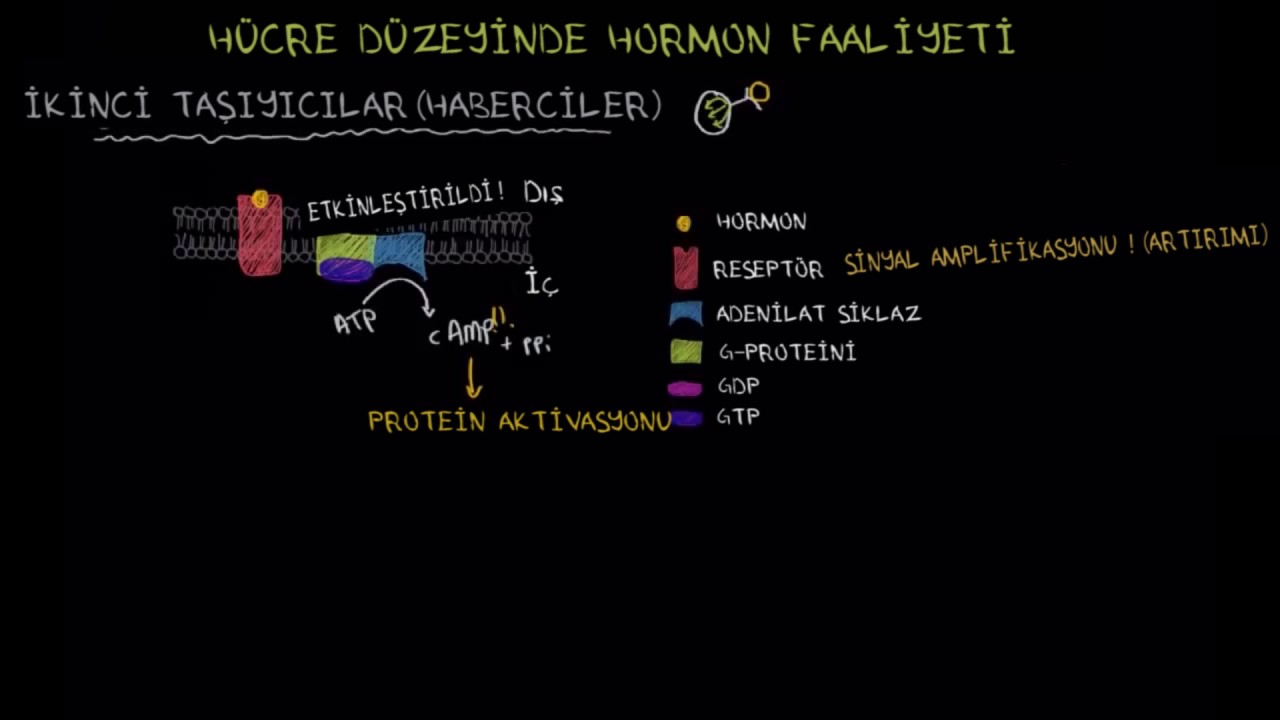 HÜCRE DÜZEYİNDE HORMON FAALİYETİ
İKİNCİ TAŞIYICILAR (HABERCİLER)
ETKİNLEŞTİRİLDİ! DIŞ
İÇ
ATP
cAMP!!
+ PPi
PROTEİN AKTİVASYONU
HORMON
RESEPTÖR
SİNYAL AMPLİFİKASYONU ! (ARTIRIMI)
ADENİLAT SİKLAZ
G-PROTEİNİ
GDP
GTP